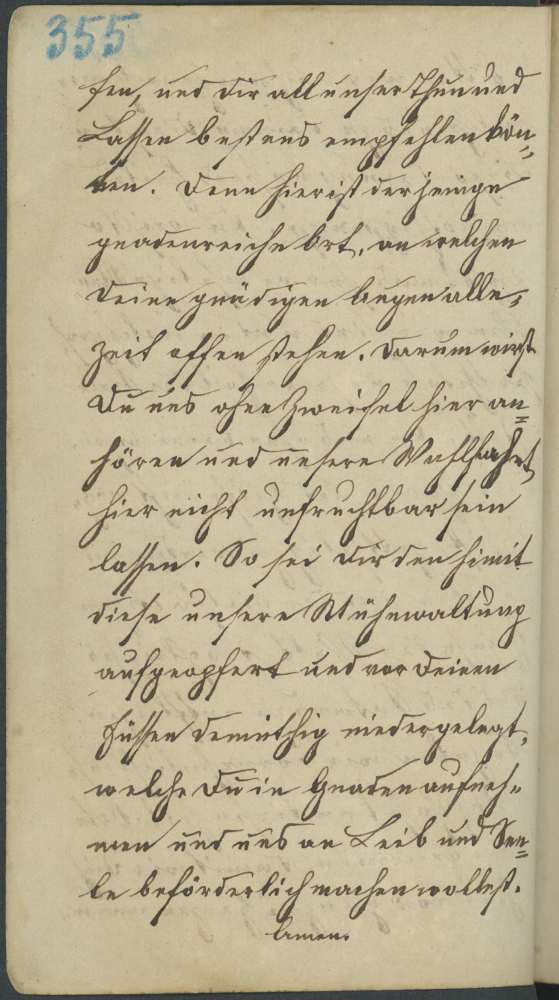 355
sen, und dir all unser Thun und
Lassen bestens empfehlen kön„
nen. Denn hier ist derjenige
gnadenreiche Ort, an welchen
deine gnädigen Augen alle„
zeit offen stehen. Darum wirst
Du uns ohne Zweifel hier an=
hören und unsere Wallfahrt
hier nicht unfruchtbar sein
lassen. So sei dir den himit
diese unsere Mühewaltung
aufgeopfert und vor deinen
Füssen demüthig niedergelegt,
welche Du in Gnaden aufneh„
men und uns an Leib und See=
le beförderlich machen wollest.
Amen.